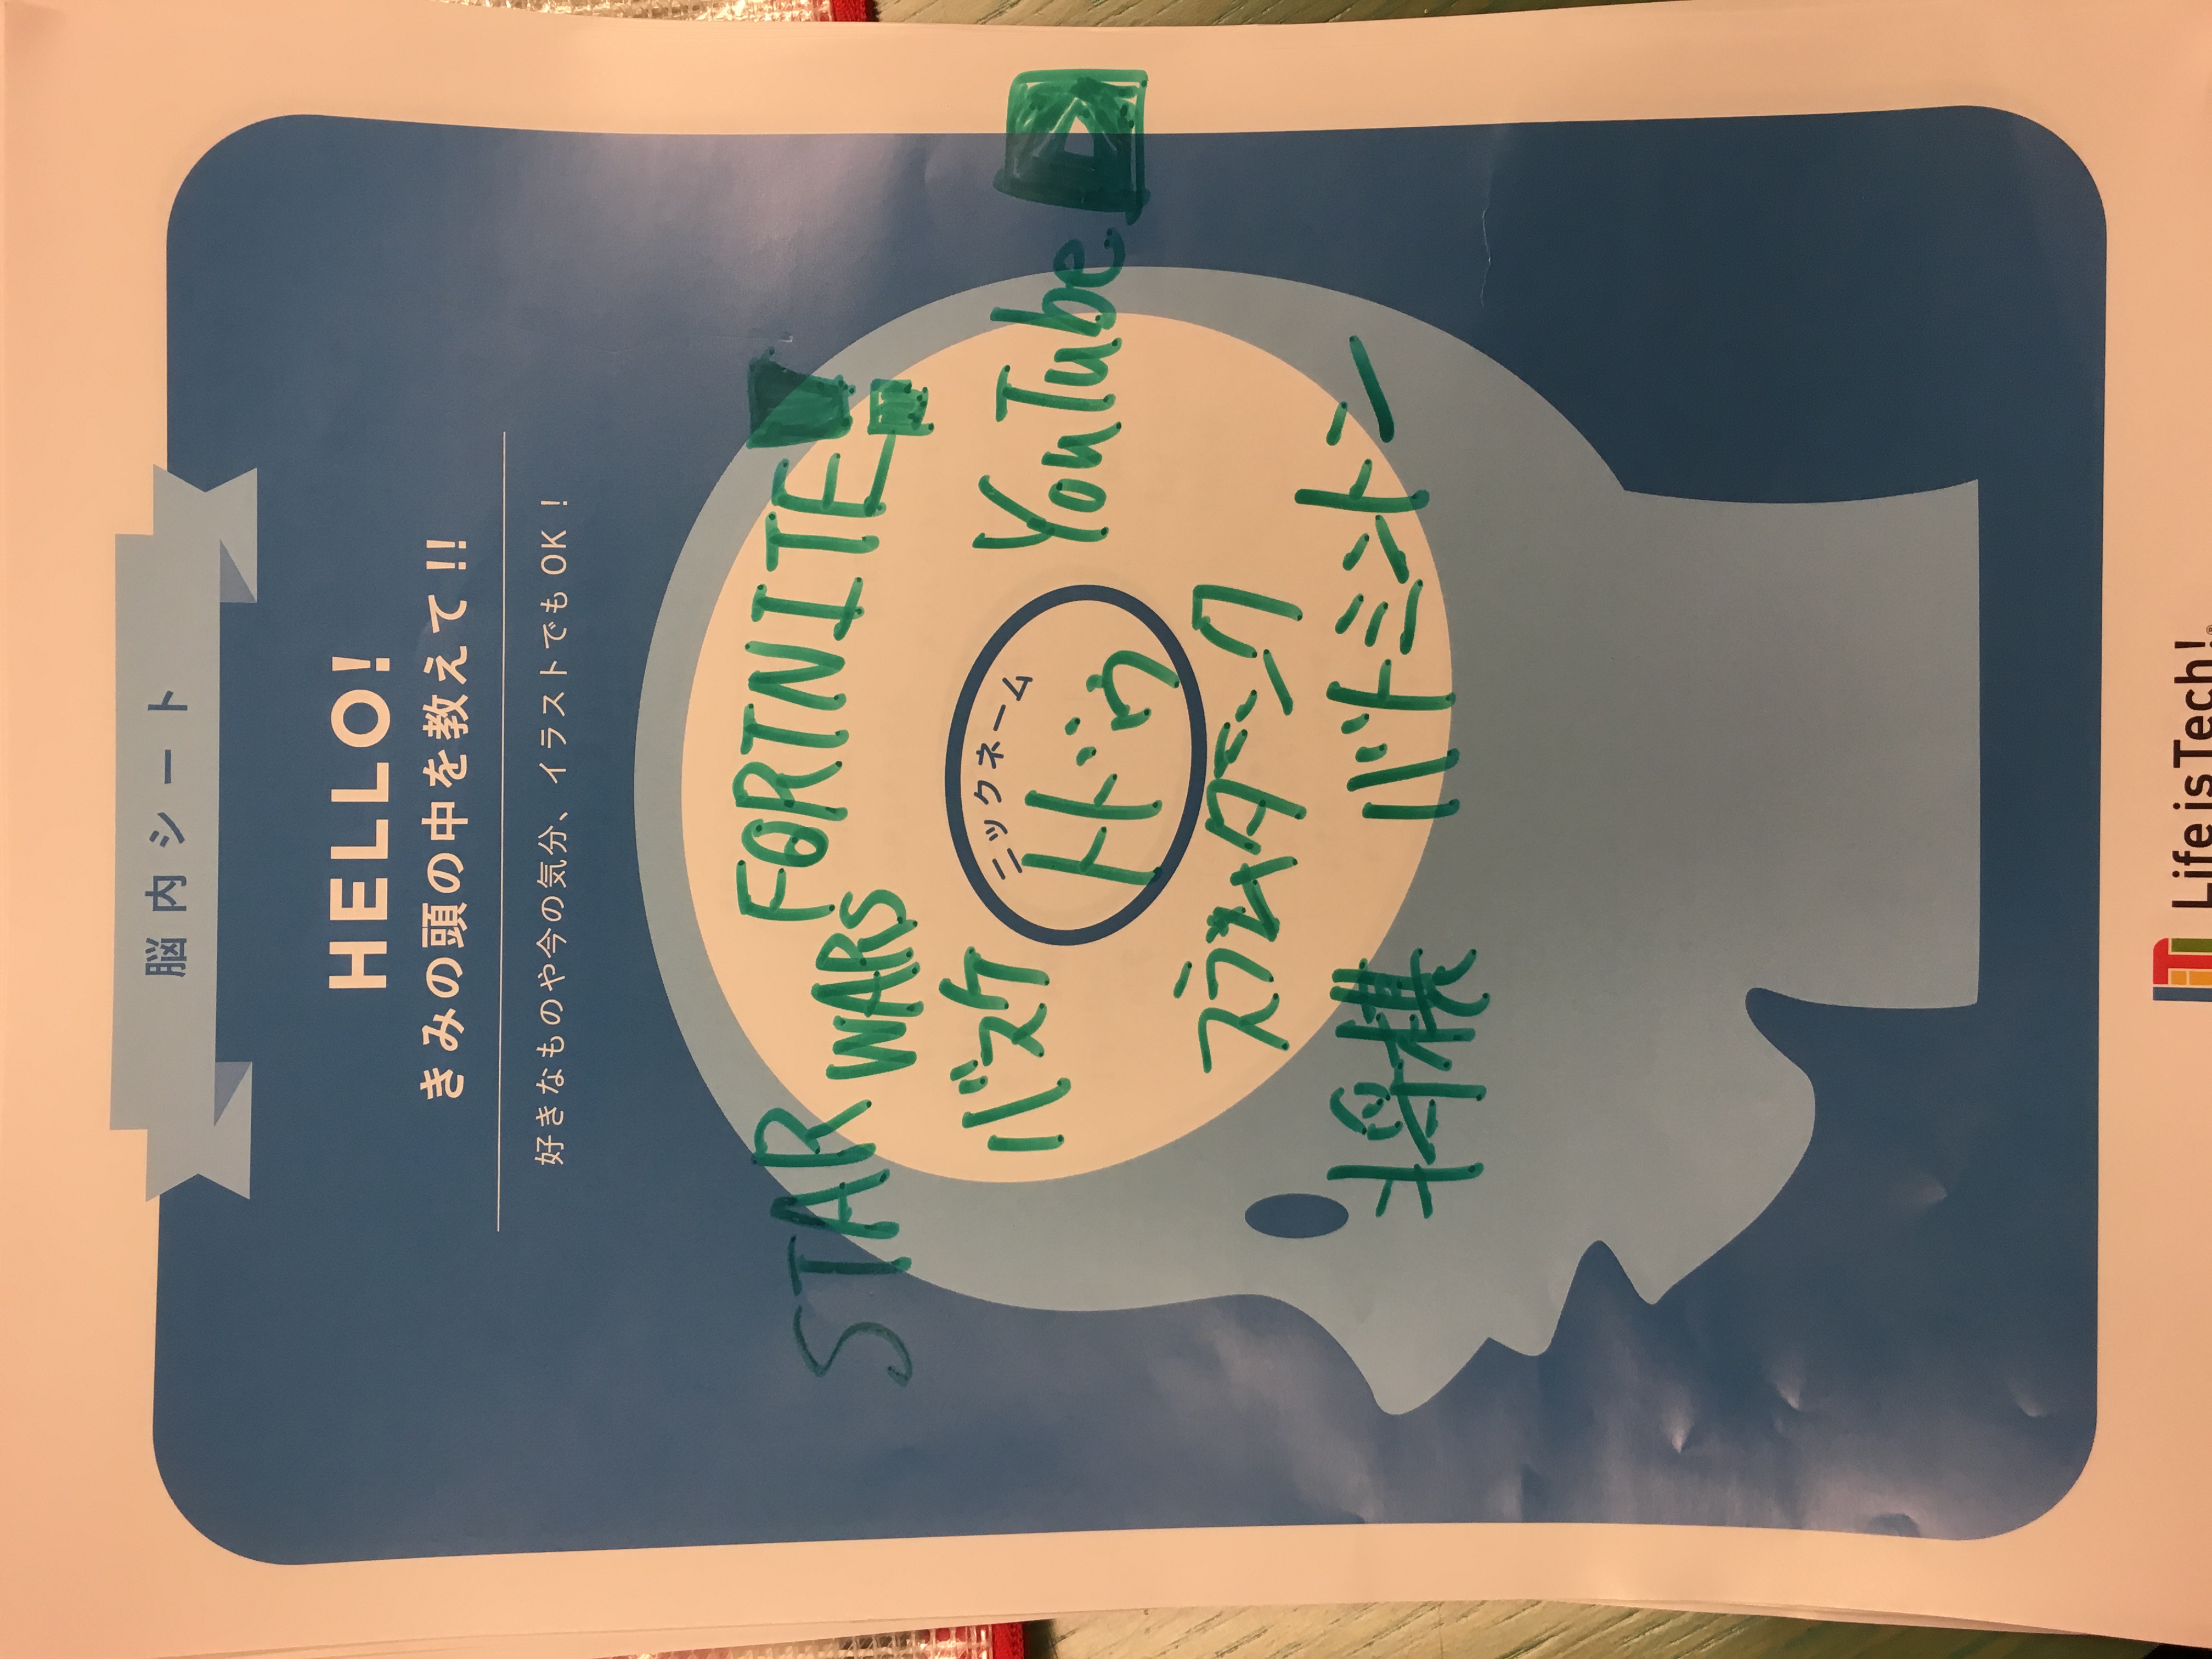 脳内シート
HELLO!
きみの頭の中を教えて!!
好きなものや今の気分、イラストでもOK！
STAR WARS
FORTNITE!
バスケ
ニックネーム
トドゥ
YouTube
スラムダンク
将棋
バトミントン
Life is Tech!®